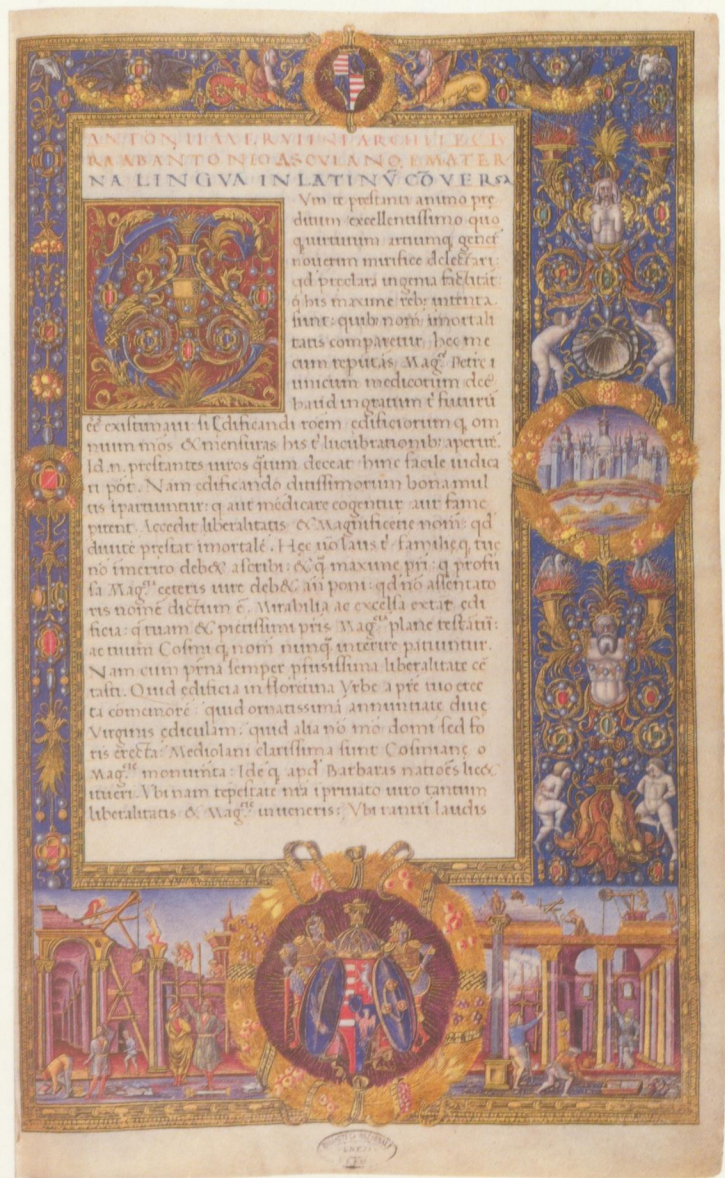 ANTONII AVERVLINI ARCHITECTV
RA AB ANTONIO ASCVLANO E MATER
NA LINGVA IN LATINṼ CŌVERsa
Vm te prestanti animo prę
ditum excellentissimo quo
q uirtutum artiumq generi
nouerim mirifice delectari:
qd preclara ingenia
his maxime reb; intenta
sint: quib nom̄ imortali
tatis comparetur. hec me
cum reputās Mag.ce Petre
unicum medicorum
haud ingratum ē futurū
eē existimaui si Edificandi roēm edificiorum q om
nium mōs & mensuras his ē lucubrationib; aperirē.
Id .n. prestantes uiros deceat hinc facile iudica
ri pōt. Nam edificando ditissimorum bona mul
tis ipartiuntur: q aut mēdicare cogentur aut fame
pirent. Accedit liberalitatis & Magnificētie nom̄: qd
diuitē prestat imortalē. Hec uō laus ē familięq tue
nō imerito deb& ascribi: & maxime pri: q profu
sa Mag.tia ceteris iure deb& an̄ poni: qd nō assentato
ris nomē dictum ē. Mirabilia ac excelsa extāt edi
ficia: q tuam & pientissimi pris Mag.tia plane testātū:
ac tuum Cosmi q nom̄ nunq interire patiuntur.
Nam cum semper liberalitate
tasti. Quid edificia in floretina Vrbe a pre tuo erec
ta comēmorē: quid ornatissimā annuntiate diue
Virginis ędiculam: quid alia nō mō domi sed fo
ris erecta: Mediolani clarissima sunt Cosmianę
Mag.tie monumta: Ide q apd Barbaras natiōes lic&
itueri. Vbi nam tēpestate nrā i priuato uiro tantum
liberalitatis & Mag.tie inueneris: Vbi tantū laudis